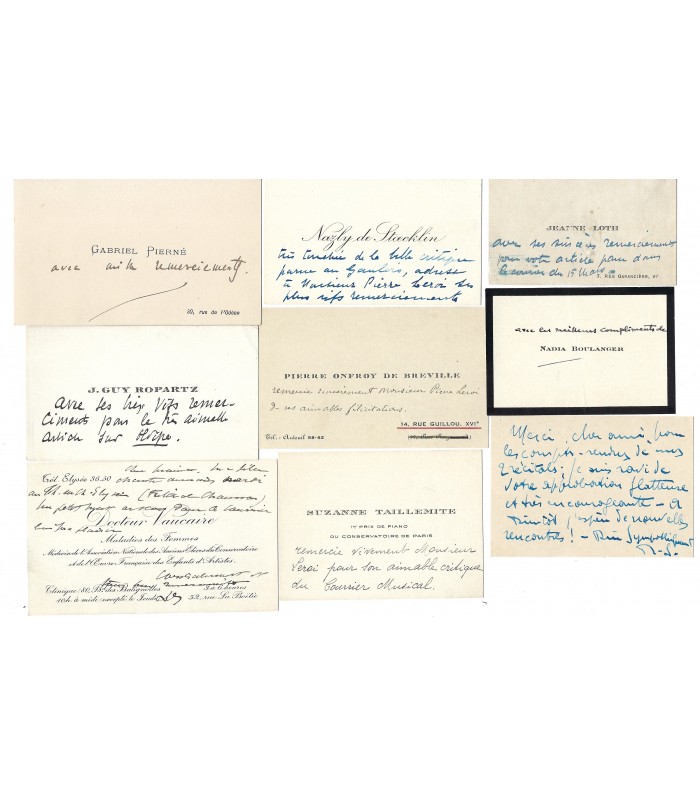 GABRIEL PIERNÉ
avec mille remerciements
20, rue de l'Odéon
Nazly de Stœcklin
très touchée de la belle critique
parue au Gaulois, adresse
à Monsieur Pierre Leroi ses
plus vifs remerciements
JEANNE LOTH
avec ses sincères remerciements
pour votre article paru dans
le courrier du 15 Mars
7, RUE GARANCIÈRE, VI°
J. GUY ROPARTZ
avec ses très vifs remer-
ciements pour le très aimable
article sur
PIERRE ONFROY DE BREVILLE
remercie sincèrement Monsieur Pierre Leroi
de ses aimables félicitations.
14, RUE GUILLOU, XVI°
Tél. : Auteuil 28-42
avec les meilleurs compliments de
NADIA BOULANGER
Tél. Elysée 36.50
Docteur Vaucaire
Maladies des Femmes
Médecin de l'Association Nationale des Anciens Élèves du Conservatoire
et de l'Œuvre Française des Enfants d'Artistes.
Clinique: 80, Bd. des Batignolles
10h. à midi excepté le Jeudi
3 à 6 heures
32, rue La Boëtie
SUZANNE TAILLEMITE
1er PRIX DE PIANO
DU CONSERVATOIRE DE PARIS
remercie vivement Monsieur
Leroi pour son aimable critique
du Courrier Musical.
Merci, cher ami, pour
les compts-rendus de mes
récitals; je suis ravi de
votre approbation flatteuse
et très encourageante - A
bientôt j'espère de nouvelles
rencontres! - Bien sympathiquement